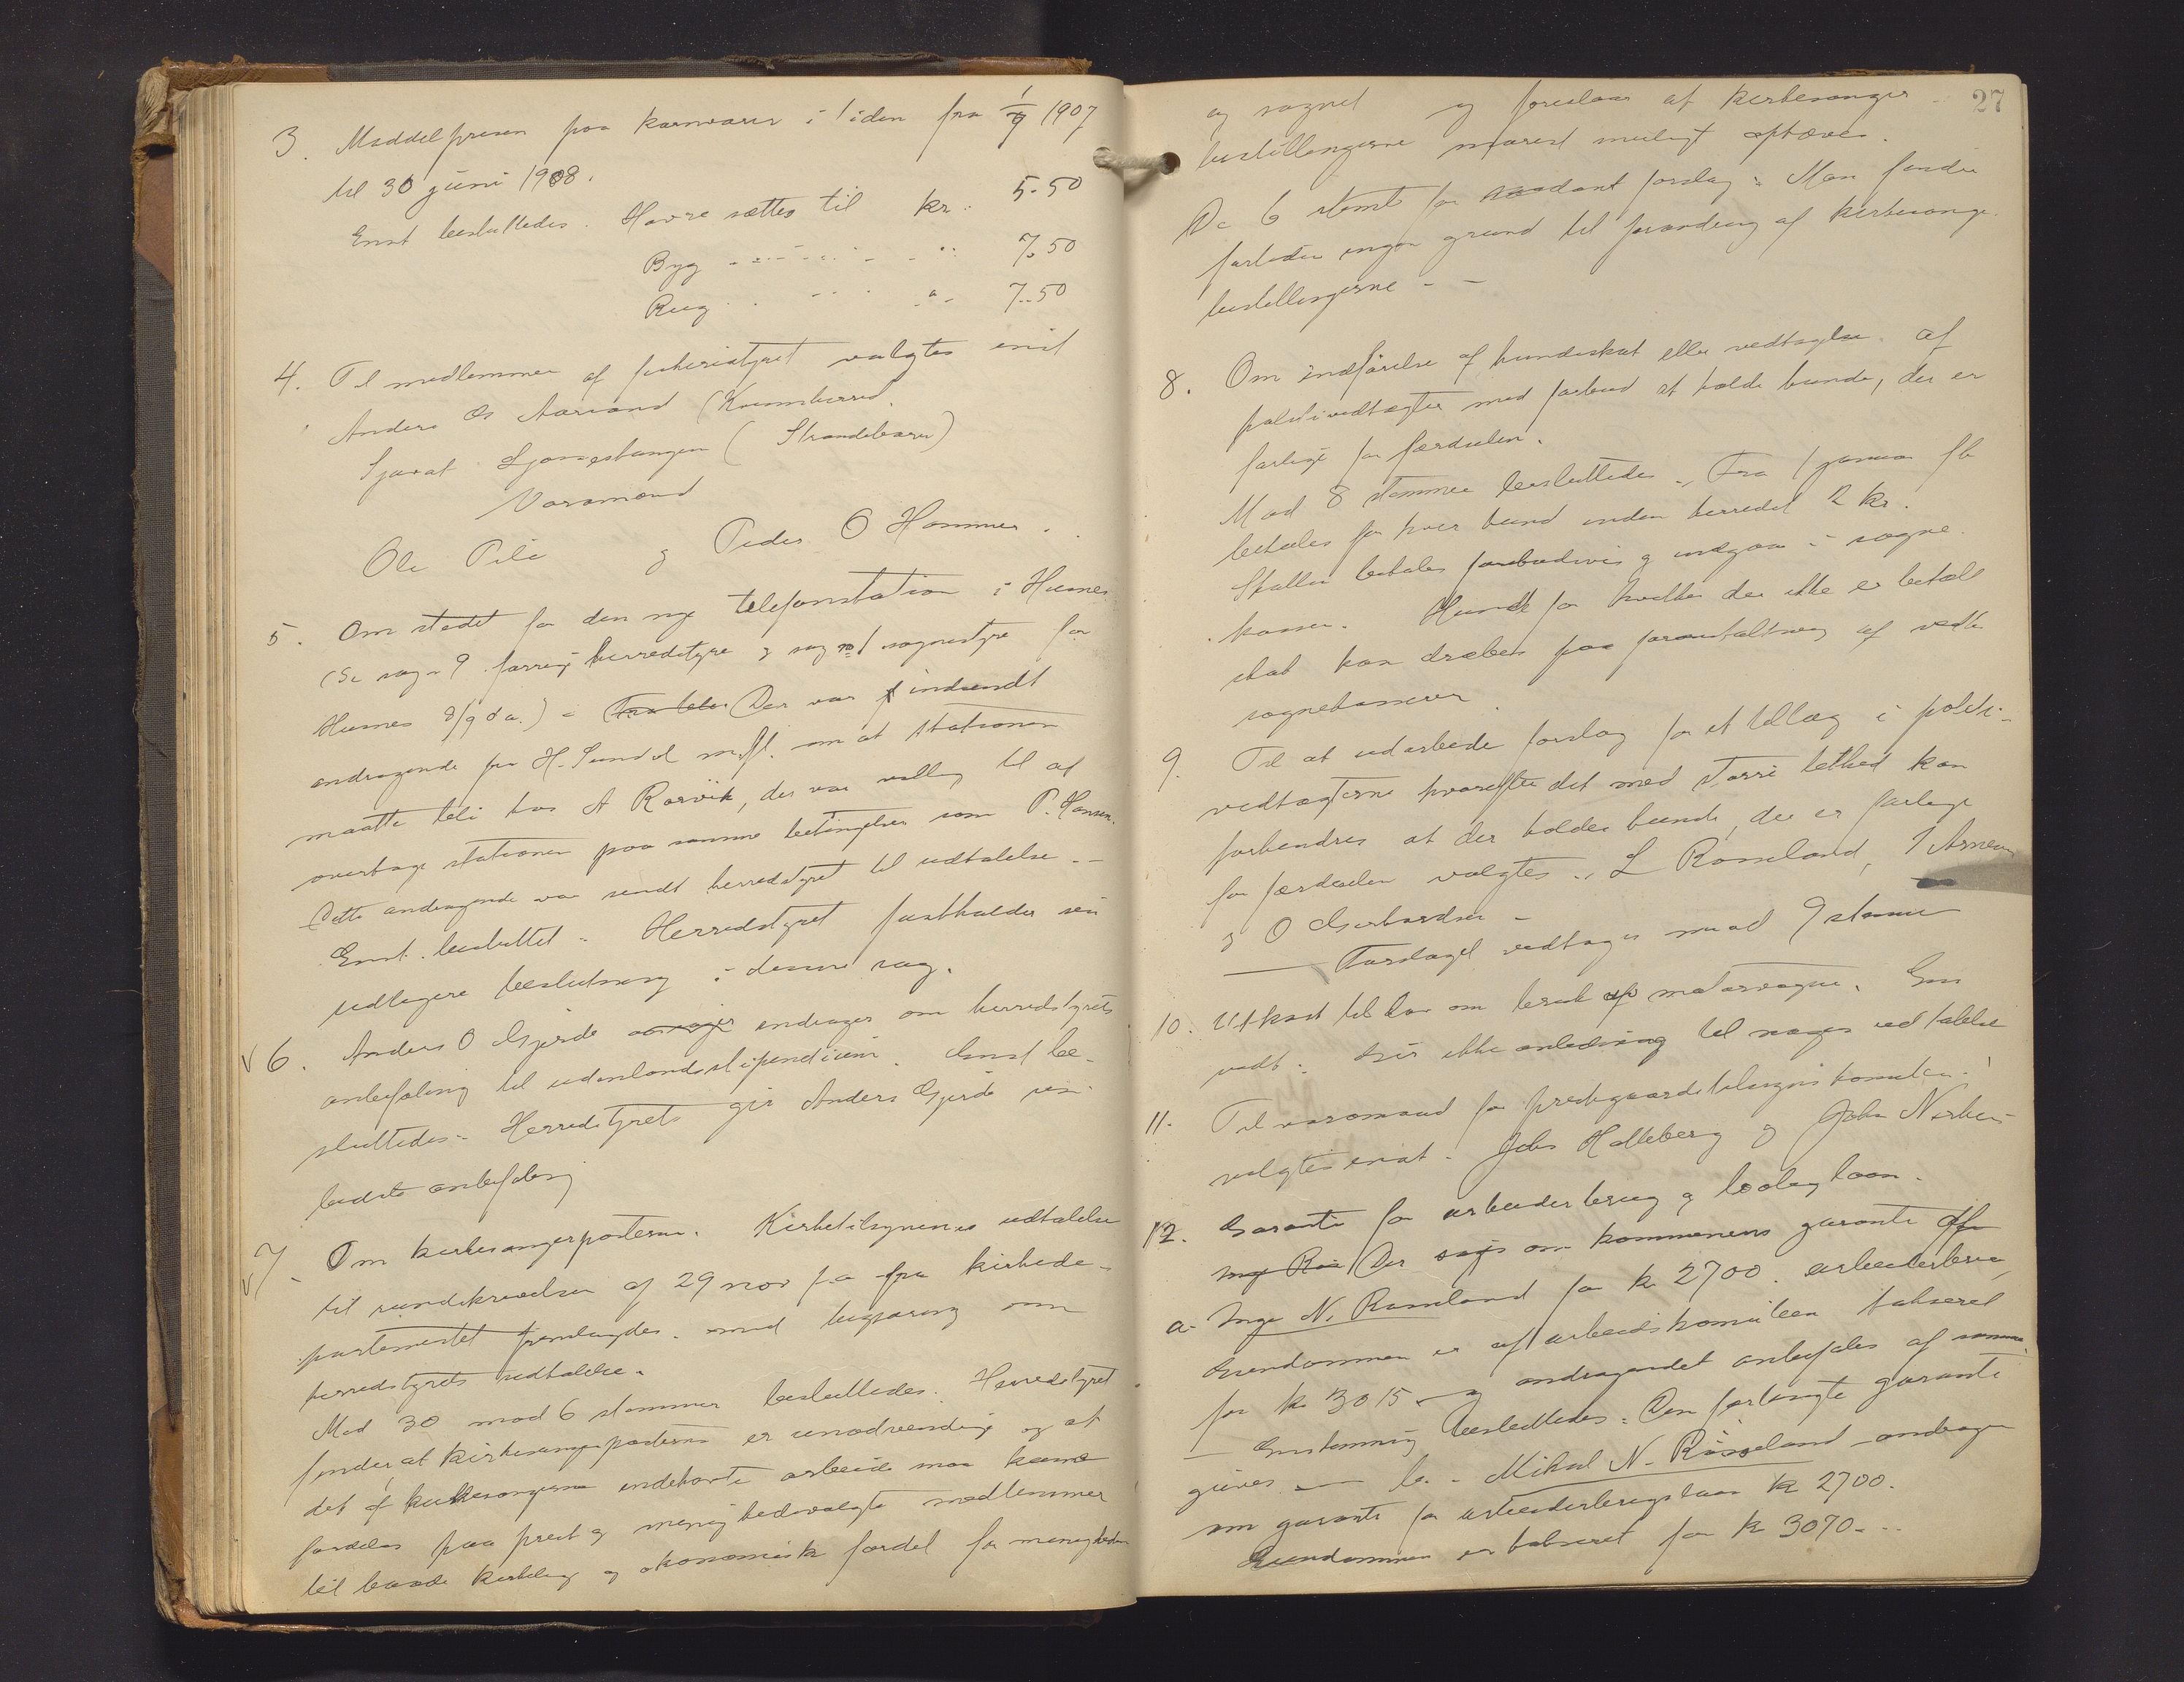 3. Middelprisen paa kornvarer i tiden fra 1/7 1907
til 30 juni 1908.
Enst besluttedes. Havre sættes til kr. 5.50
Byg - - - - - - - 7.50
Rug - - - - - 7.50
4. Til medlemmer af fiskeristyret valgtes enst
Anders Os Aarsand (Kvennherred.
Sjovat Ljonestangen (Strandebarm)
Varamænd
Ole Pile og Peder O Hammer.
5. Om stedet for den nye telefonstation i Husnes
(Se sag n 9 forrige herredstyre og sag no 1 sognestyre for
Husnes 8/9 d a.) - Fra Der var indsendt
andragende fra H. Sunde m. fl. om at stationen
maatte bli hos A Rørvik, der var villig til at
overtage stationen paa samme betingelser som P. Hansen.
Dette andragende var sendt herredstyret til udtalelse. -
Enst. besluttet - Herredstyret fastholder sin
tidligere beslutning i denne sag.
6. Anders O Gjerde ansøger andrager om herredstyrets
anbefaling til udenlandsstipendium. Enst be-
sluttedes - Herredstyret gir Anders Gjerde sin
bedste anbefaling
7. Om kirkesangerposterne. Kirketilsynenes udtalelse
til rundskrivelse af 29 nov f a fra kirkede-
partementet fremlagdes. med begjæring om
herredstyrets udtalelse.
Med 30 mod 6 stemmer besluttedes. Herredstyret
finder at kirkesangerposterne er unødvendig og at
det af kirkesangerne indehavte arbeide maa kunne
fordeles paa prest og menighedsvalgte medlemmer
til baade kirkelig og økonomisk fordel for menigheden
27
og sognet og foreslaar at kirkesanger
bestillingerne snarest muligt ophæves.
De 6 stemte for saadant forslag: Man finder
forleden ingen grund til forandring af kirkesanger
bestillingerne - -
8. Om indførelse af hundeskat eller vedtagelse af
politivedtægter med forbud at holde hunde, der er
farlige for færdselen.
Mod 8 stemmer besluttedes. Fra 1 januar
betales for hver hund inden herredet 2 kr.
Skatten betales forskudsvis og indgaar i sogne
kassen. Hunde for hvilke der ikke er betalt
skat kan dræbes paa foranstaltning af vedk
sognekasserer
9. Til at udarbeide forslag for et tillæg i politi-
vedtægterne hvorefter det med større lethed kan
forhindres at der holdes hunde, der er farlige
for færdselen valgtes. L Røseland, I Arnesen
og O Gerhardsen -
Forslaget vedtages mod 9 stemmer
10. Utkast til lov om bruk af motorvogne. Ens
vedt. Gir ikke anledning til nogen udtalelse
11. Til varamand for prestegaardstilsynskomiteen
valgtes enst. Johs Halleberg og John Nerhus
12. Garanti for arbeiderbrug og boliglaan.
Inge Rø Der søges om kommunens garanti for
a. Inge N. Røseland for kr 2700. arbeiderbrug,
Eiendommen er af arbeidskomiteen takseret
for kr 3015 og andragendet anbefales af samme.
- Enstemmig besluttedes: Den forlangte garanti
gives - b. - Mikal N. Røseland andrager
om garanti for arbeiderbrugslaan kr 2700.
Eiendommen er takseret for kr 3070. - -